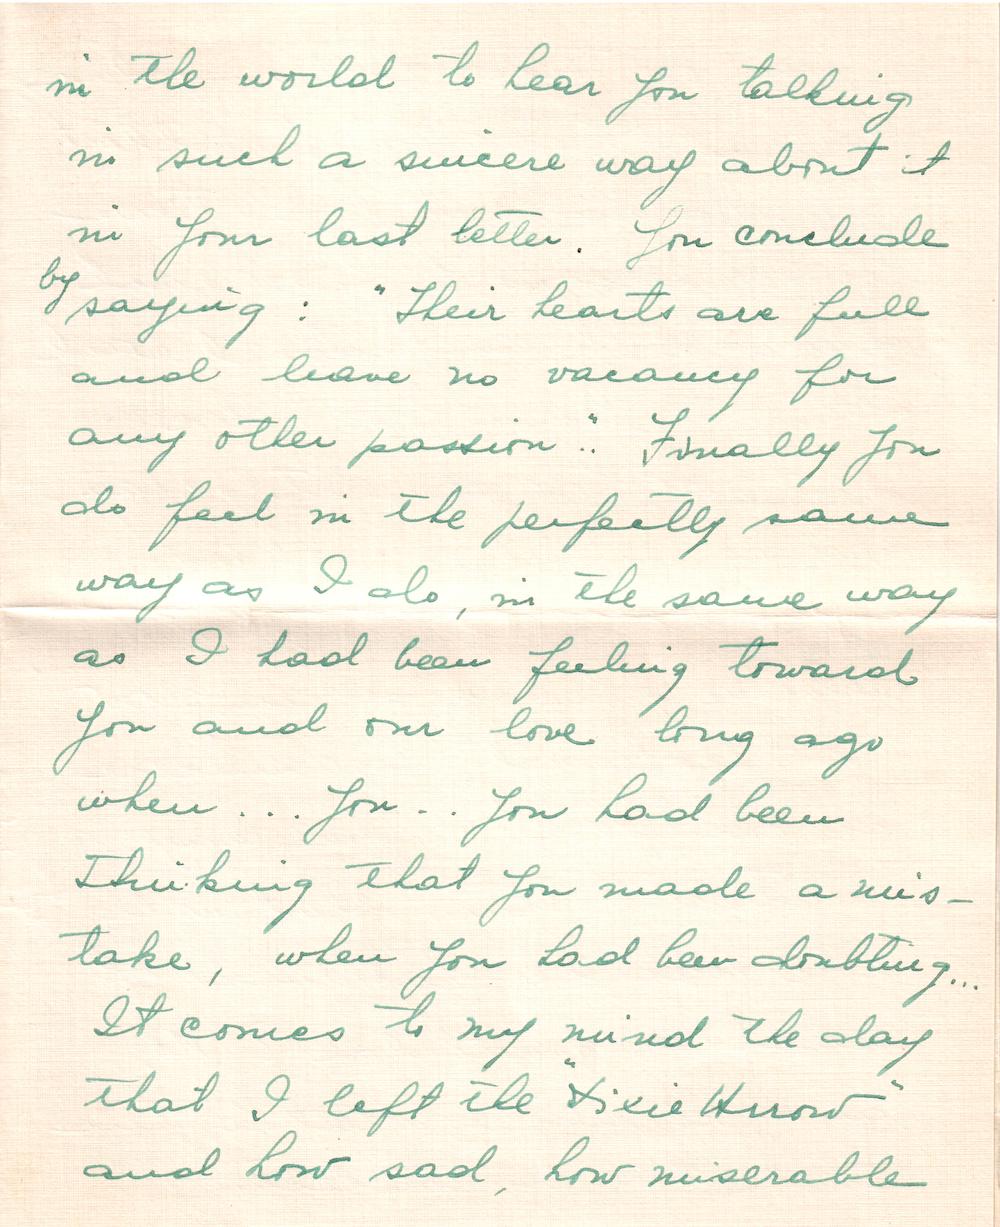 in the world to hear you talking
in such a sincere way about it
in your last letter. You conclude
by saying : "Their hearts are full
and leave no vacancy for
any other passion". Finally you
do feel in the perfectly same
way as I do, in the same way
as I had been feeling toward
you and our love long ago
when ... you .. you had been
thinking that you made a mis-
take, when you had been doubting...
It comes to my mind the day
that I left the "Dixie Arrow"
and how sad, how miserable